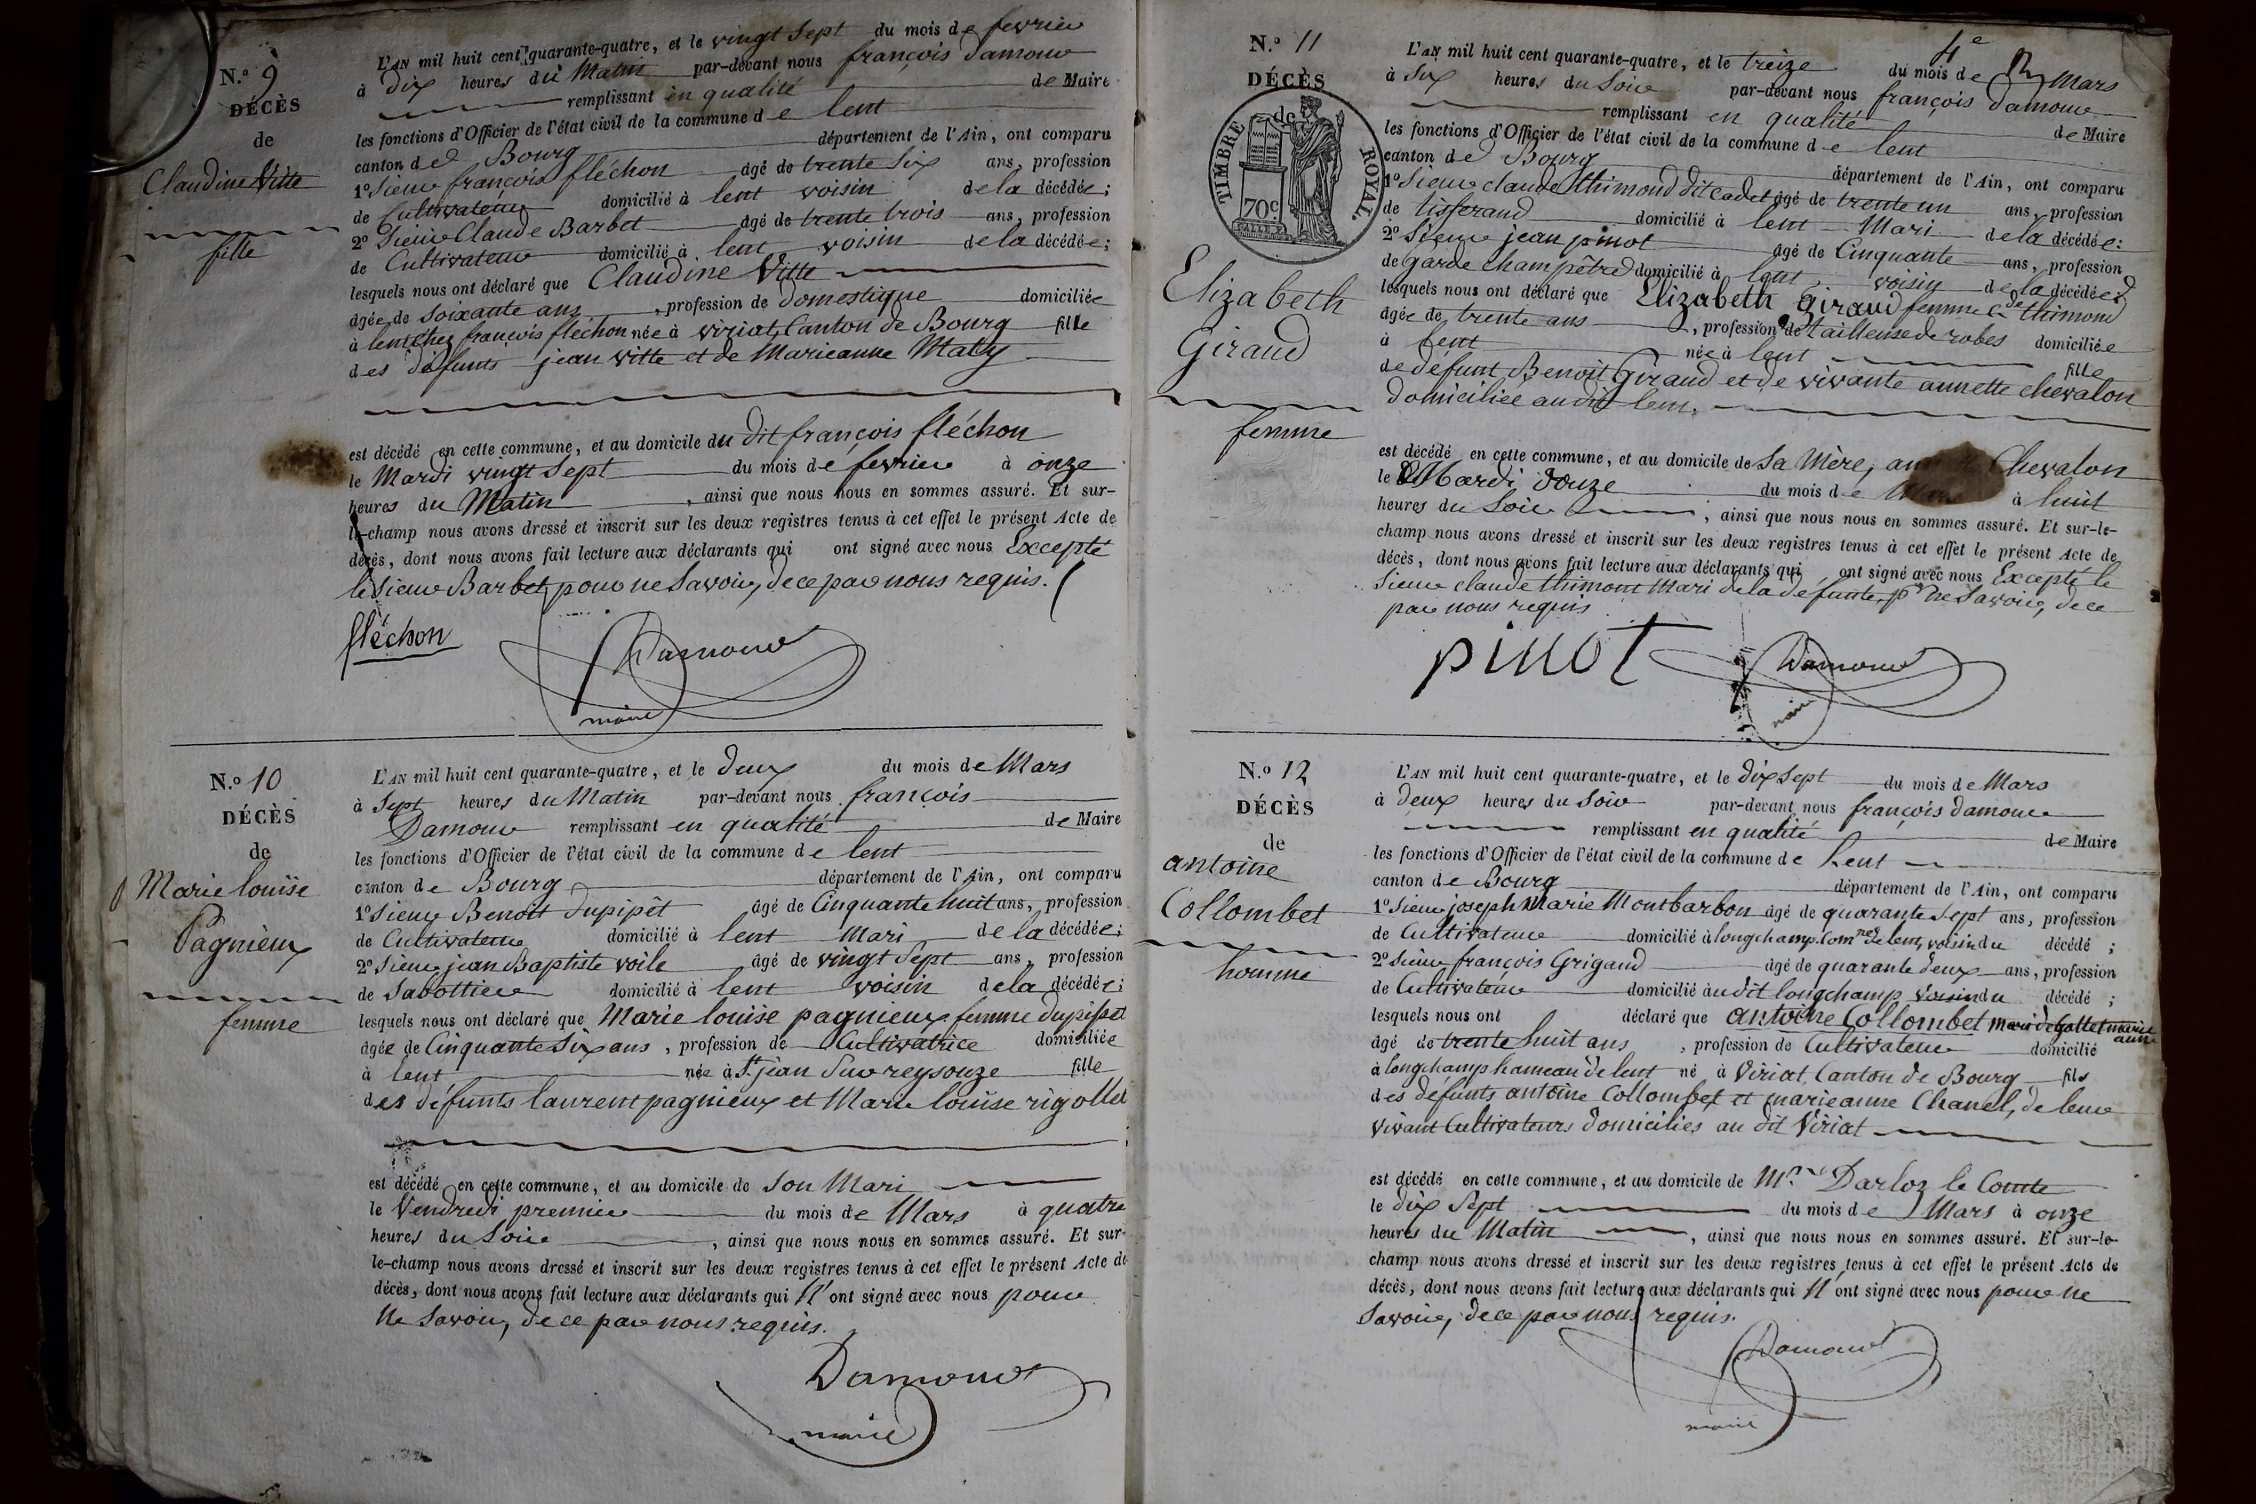 N.º 9
DÉCÈS
de
Claudine Vitte
fille
L'AN mil huit cent quarante-quatre, et le vingt sept du mois de fevrier
à dix heures du Matin par-devant nous françois damour
remplissant en qualité de Maire
les fonctions d'Officier de l'état civil de la commune de lent
canton de Bourg département de l'Ain, ont comparu
1º Sieur françois fléchon âgé de trente six ans, profession
de Cultivateur domicilié à lent voisin de la décédée;
2º Sieur Claude Barbet âgé de trente trois ans, profession
de Cultivateur domicilié à lent voisin de la décédée;
lesquels nous ont déclaré que Claudine Vitte
âgée de soixante ans, profession de domestique domiciliée
à lent chez françois fléchon née à viriat, Canton de Bourg fille
des défunts jean vitte et de Marieanne Maty
est décédé en cette commune, et au domicile du dit françois fléchon
le Mardi vingt sept du mois de fevrier à onze
heures du Matin, ainsi que nous nous en sommes assuré. Et sur-
le-champ nous avons dressé et inscrit sur les deux registres tenus à cet effet le présent Acte de
décès, dont nous avons fait lecture aux déclarants qui ont signé avec nous Excepté
le Sieur Barbet pour ne Savoir, de ce par nous requis.
fléchon Damour
maire
N.º 10
DÉCÈS
de
Marie louise
Pagnieux
femme
L'AN mil huit cent quarante-quatre, et le deux du mois de Mars
à Sept heures du Matin par-devant nous françois
Damour remplissant en qualité de Maire
les fonctions d'Officier de l'état civil de la commune de lent
canton de Bourg département de l'Ain, ont comparu
1º Sieur Benoit dupipêt âgé de Cinquante huit ans, profession
de Cultivateur domicilié à lent Mari de la décédée;
2º Sieur jean Baptiste voile âgé de vingt Sept ans, profession
de Sabottier domicilié à lent voisin de la décédée;
lesquels nous ont déclaré que Marie louise pagnieux femme dupipet
âgée de Cinquante Six ans, profession de Cultivatrice domiciliée
à lent née à St. jean Sur reysouze fille
des défunts laurent pagnieux et Marie louise rigollet
est décédé en cette commune, et au domicile de Son Mari
le Vendredi premier du mois de Mars à quatre
heures du Soir, ainsi que nous nous en sommes assuré. Et sur-
le-champ nous avons dressé et inscrit sur les deux registres tenus à cet effet le présent Acte de
décès, dont nous avons fait lecture aux déclarants qui n'ont signé avec nous pour
ne Savoir, de ce par nous requis.
Damour
maire
4e
N.º 11
DÉCÈS
de
TIMBRE ROYAL.
70c
Elizabeth
Giraud
femme
L'AN mil huit cent quarante-quatre, et le treize du mois de Mars
à Six heures du Soir par-devant nous françois damour
remplissant en qualité de Maire
les fonctions d'Officier de l'état civil de la commune de lent
canton de Bourg département de l'Ain, ont comparu
1º Sieur claude thimond dit cadet âgé de trente un ans, profession
de tisserand domicilié à lent Mari de la décédée;
2º Sieur jean pinot âgé de Cinquante ans, profession
de garde champêtre domicilié à lent voisin de la décédée;
lesquels nous ont déclaré que Elizabeth Giraud femme Cde thimond
âgée de trente ans, profession de tailleuse de robes domiciliée
à lent née à lent fille
de défunt Benoit Giraud et de vivante annette chevalon
domiciliée au dit lent.
est décédé en cette commune, et au domicile de Sa Mère, Chevalon
le Mardi douze du mois de à huit
heures du Soir, ainsi que nous nous en sommes assuré. Et sur-le-
champ nous avons dressé et inscrit sur les deux registres tenus à cet effet le présent Acte de
décès, dont nous avons fait lecture aux déclarants qui ont signé avec nous Excepté le
Sieur claude thimont Mari de la défunte, pr ne Savoir, de ce
par nous requis
pinot Damour
maire
N.º 12
DÉCÈS
de
antoine
Collombet
homme
L'AN mil huit cent quarante-quatre, et le dix Sept du mois de Mars
à deux heures du Soir par-devant nous françois damour
remplissant en qualité de Maire
les fonctions d'Officier de l'état civil de la commune de Lent
canton de Bourg département de l'Ain, ont comparu
1º Sieur joseph Marie Montbarbon âgé de quarante Sept ans, profession
de Cultivateur domicilié à longchamp Comne de lent, voisin du décédé;
2º Sieur françois Grigaud âgé de quarante deux ans, profession
de Cultivateur domicilié au dit longchamp voisin du décédé;
lesquels nous ont déclaré que antoine Collombet mari de Gottet marie anne
âgé de trente huit ans, profession de Cultivateur domicilié
à longchamp hameau de lent né à Viriat, Canton de Bourg fils
des défunts antoine Collombet et marieanne Chanel, de leur
vivant Cultivateurs domiciliés au dit Viriat
est décédé en cette commune, et au domicile de Mr. Darloz le Comte
le dix Sept du mois de Mars à onze
heures du Matin, ainsi que nous nous en sommes assuré. Et sur-le-
champ nous avons dressé et inscrit sur les deux registres tenus à cet effet le présent Acte de
décès, dont nous avons fait lecture aux déclarants qui n'ont signé avec nous pour ne
Savoir, de ce par nous requis.
Damour
maire